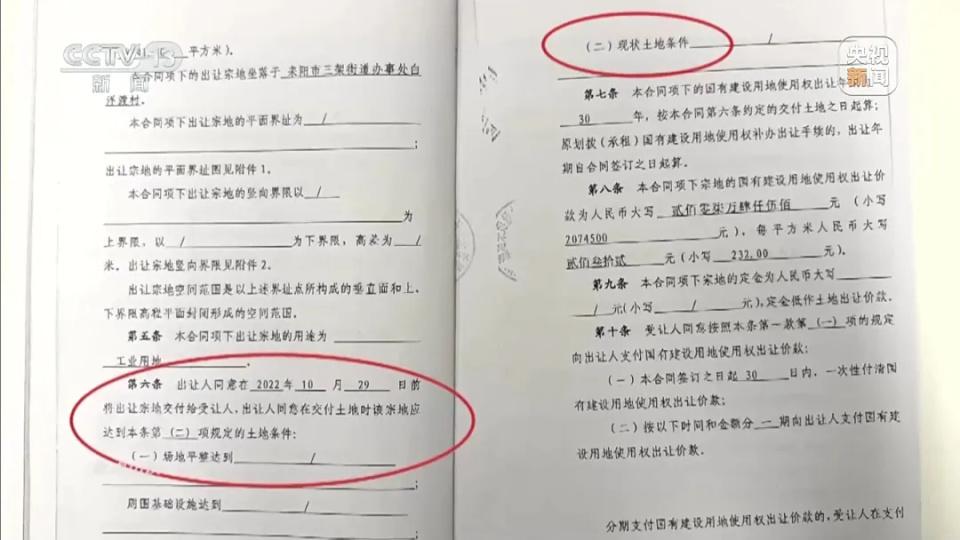 CCTV-13
新闻
央视
新闻
平方米)。
合同项下的出让宗地坐落于 耒阳市三架街道办事处白
洋渡村。
本合同项下出让宗地的平面界址为 /
;
出让宗地的平面界址图见附件1。
本合同项下出让宗地的竖向界限以 /
为
上界限,以 / 为下界限,高差为 /
米。出让宗地竖向界限见附件2。
出让宗地空间范围是以上述界址点所构成的垂直面和上、
下界限高程平面封闭形成的空间范围。
第五条 本合同项下出让宗地的用途为
工业用地
第六条 出让人同意在 2022 年 10 月 29 日前
将出让宗地交付给受让人,出让人同意在交付土地时该宗地应
达到本条第 (二) 项规定的土地条件:
(一)场地平整达到 /
;
周围基础设施达到 /
;
(二)现状土地条件 /
第七条 本合同项下的国有建设用地使用权出让年
30 年,按本合同第六条约定的交付土地之日起算;
原划拨(承租)国有建设用地使用权补办出让手续的,出让年
期自合同签订之日起算。
第八条 本合同项下宗地的国有建设用地使用权出让价
款为人民币大写 贰佰零柒万肆仟伍佰 元(小写
2074500 元),每平方米人民币大写
贰佰叁拾贰 元(小写 232.00 元)。
第九条 本合同项下宗地的定金为人民币大写
/ 元(小写 / 元),定金抵作土地出让价款。
第十条 受让人同意按照本条第一款第 (一) 项的规定
向出让人支付国有建设用地使用权出让价款:
(一)本合同签订之日起 30 日内,一次性付清国
有建设用地使用权出让价款;
(二)按以下时间和金额分 一 期向出让人支付国有建
设用地使用权出让价款。
分期支付国有建设用地使用权出让价款的,受让人在支付